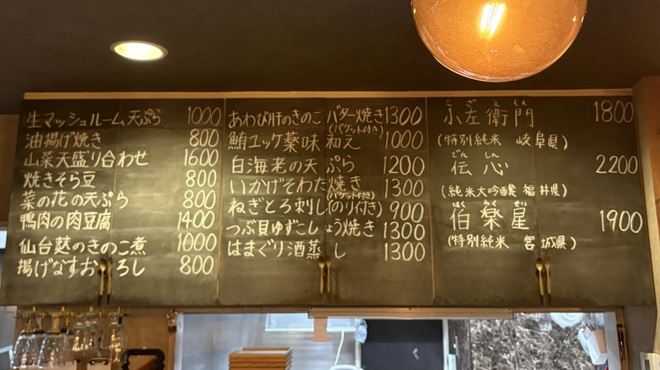 生マッシュルーム天ぷら 1000
油揚げ焼き 800
山菜天盛り合わせ 1600
焼きそら豆 800
菜の花の天ぷら 800
鴨肉の肉豆腐 1400
仙台麩のきのこ煮 1000
揚げなすおろし 800
あわび肝のきのこバター焼き 1300
(バケット付き)
鮪ユッケ薬味和え 1000
白海老の天ぷら 1200
いかげそわた焼き 1300
(バケット付き)
ねぎとろ刺し(のり付き) 900
つぶ貝ゆずこしょう焼き 1300
はまぐり酒蒸し 1300
こざえもん
小左衛門 1800
(特別純米 岐阜県)
でんしん
伝心 2200
(純米大吟醸 福井県)
はくらくせい
伯楽星 1900
(特別純米 宮城県)